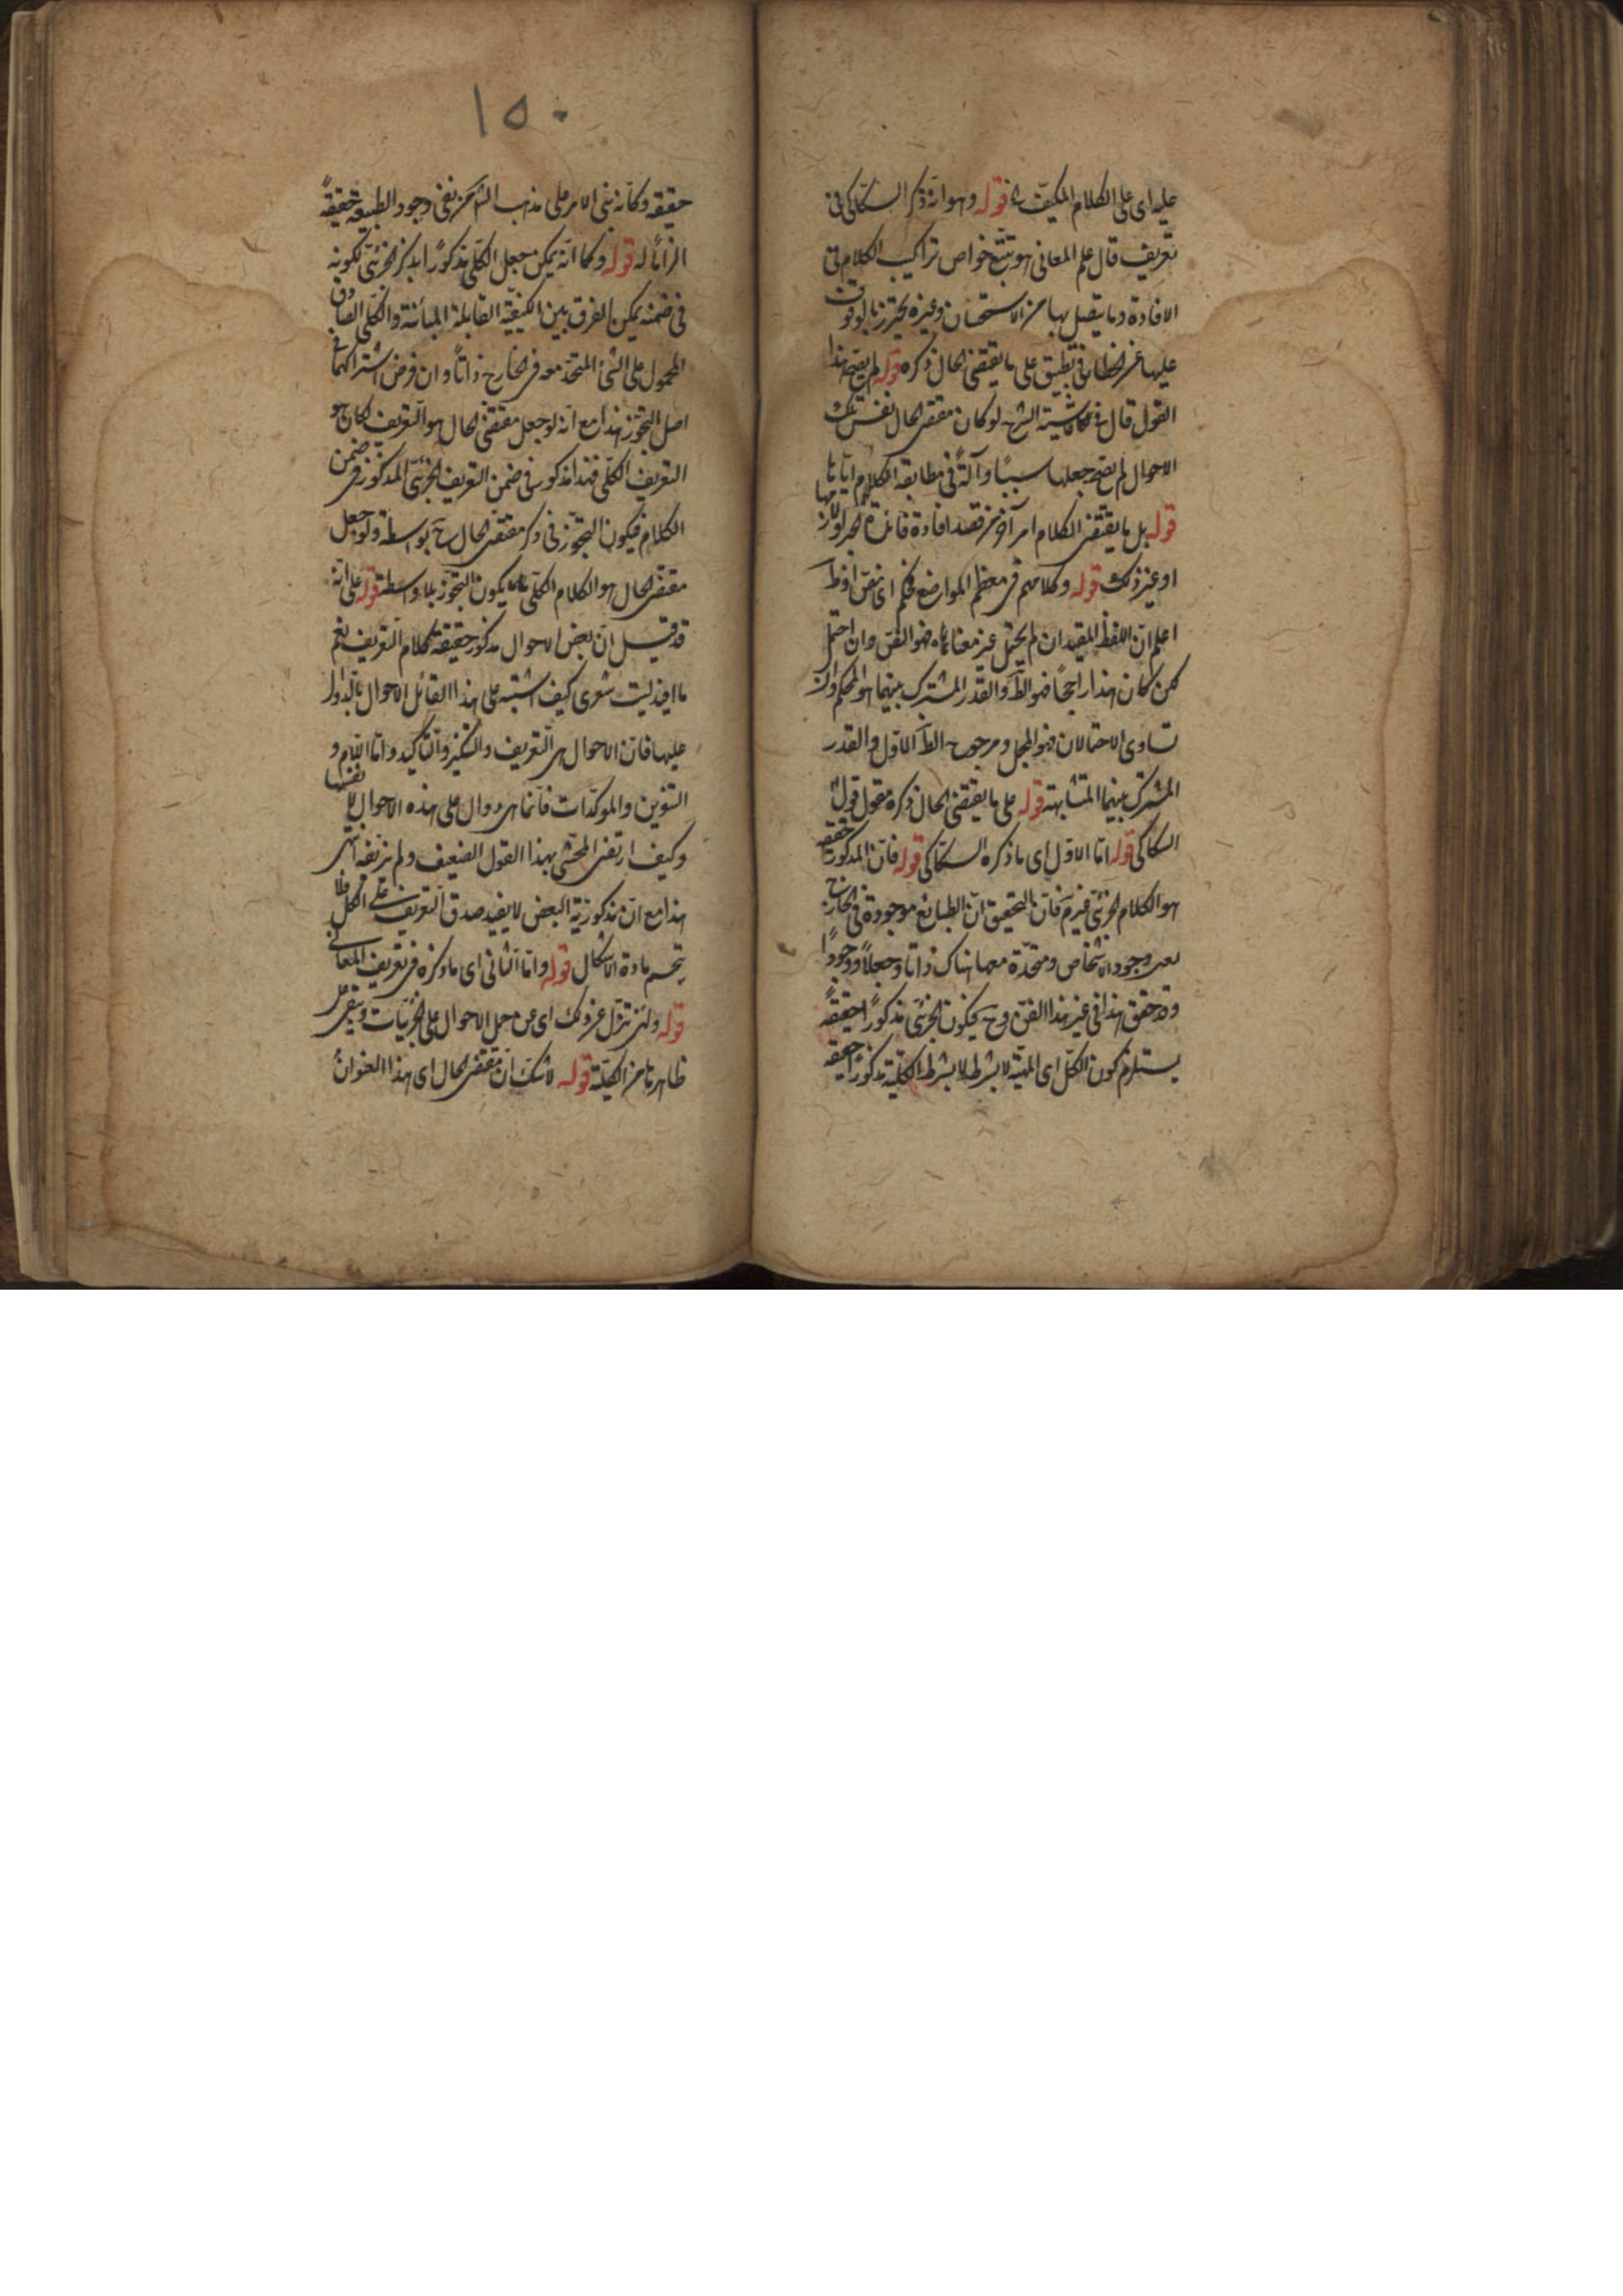 عليه اى على الكلام المكيف قوله وهو انه ذكر السكاكى فى
تعريف قال علم المعانى هو تتبع خواص تراكيب الكلام فى
الافادة وما يتصل بها من الاستحسان وغيره ليحترز بالوقوف
عليها عن الخطاء فى تطبيق على ما يقتضى الحال ذكره قوله لم يصح هذا
القول قال فى الحاشية لو كان مقتضى الحال نفس تلك
الاحوال لم يصح جعلها سببًا وآلةً فى مطابقة الكلام اياها
قوله بل ما يقتضى الكلام امر آخر من قصد افادة فائدة الخبر او لازمها
او غير ذلك قوله وكلامهم فى معظم المواضع محكم اى نص او ظ
اعلم ان اللفظ المفيد ان لم يحتمل غير معناه فهو النص وان احتمل
لكن كان هذا راجحًا فهو الظ والقدر المشترك بينهما هو المحكم وان
تساوى الاحتمالان فهو المجمل ومرجوح الظ الاول والقدر
المشترك بينهما المتشابهة قوله على ما يقتضى الحال ذكره مقول قول
السكاكى قوله اما الاول اى ما ذكره السكاكى قوله فان المذكور حقيقة
هو الكلام الجزئى فان التحقيق ان الطبايع موجودة فى الخارج
وجود الاشخاص ومتحدة معها هناك ذاتا وجعلًا ووجودًا
وقد حقق هذا فى غير هذا الفن وح يكون الجزئى مذكورًا حقيقةً
يستلزم كون الكلى اى المهية لا بشرط لا بشرط الكلية مذكورًا حقيقه
١٥٠
حقيقه وكانه بنى الامر على مذهب الش من نفى وجود الطبيعه حقيقةً
الزامًا له قوله وكما انه يمكن جعل الكلى مذكورًا بذكر الجزئى لكونه
فى ضمنه يمكن الفرق بين الكيفية القابلة المباينة والكلى الصادق
المحمول على الشئ المتحد معه فى الخارج ذاتًا وان فرض اشتراكهما فى
اصل التجوز هذا مع انه لو جعل مقتضى الحال هو التعريف لكان هو
التعريف الكلى فهذا مذكور فى ضمن التعريف الجزئى المذكور فى ضمن
الكلام فيكون التجوز فى ذكر مقتضى الحال ح بواسطة ولو جعل
مقتضى الحال هو الكلام الكلى يكون التجوز بلا واسطة قوله على انه
قد قيل ان بعض الاحوال مذكور حقيقة كلام التعريف
ليت شعرى كيف اشتبه على هذا القائل الاحوال بالدوال
عليها فان الاحوال هى التعريف والتنكير والتاكيد واما اللام و
التنوين والموكدات فانما هى دوال على هذه الاحوال لا نفسها
وكيف ارتضى المحشى بهذا القول الضعيف ولم يزيفه انتهى
هذا مع ان مذكورية البعض لا يفيد صدق التعريف على الكل فلا
ينحسم مادة الاشكال قوله واما الثانى اى ما ذكره فى تعريف المعانى
قوله ولئن تنزل عن ذلك اى عن حمل الاحوال على الجزئيات ويبقى على
ظاهرها من الكلية قوله لا شك ان مقتضى الحال اى هذا العنوان